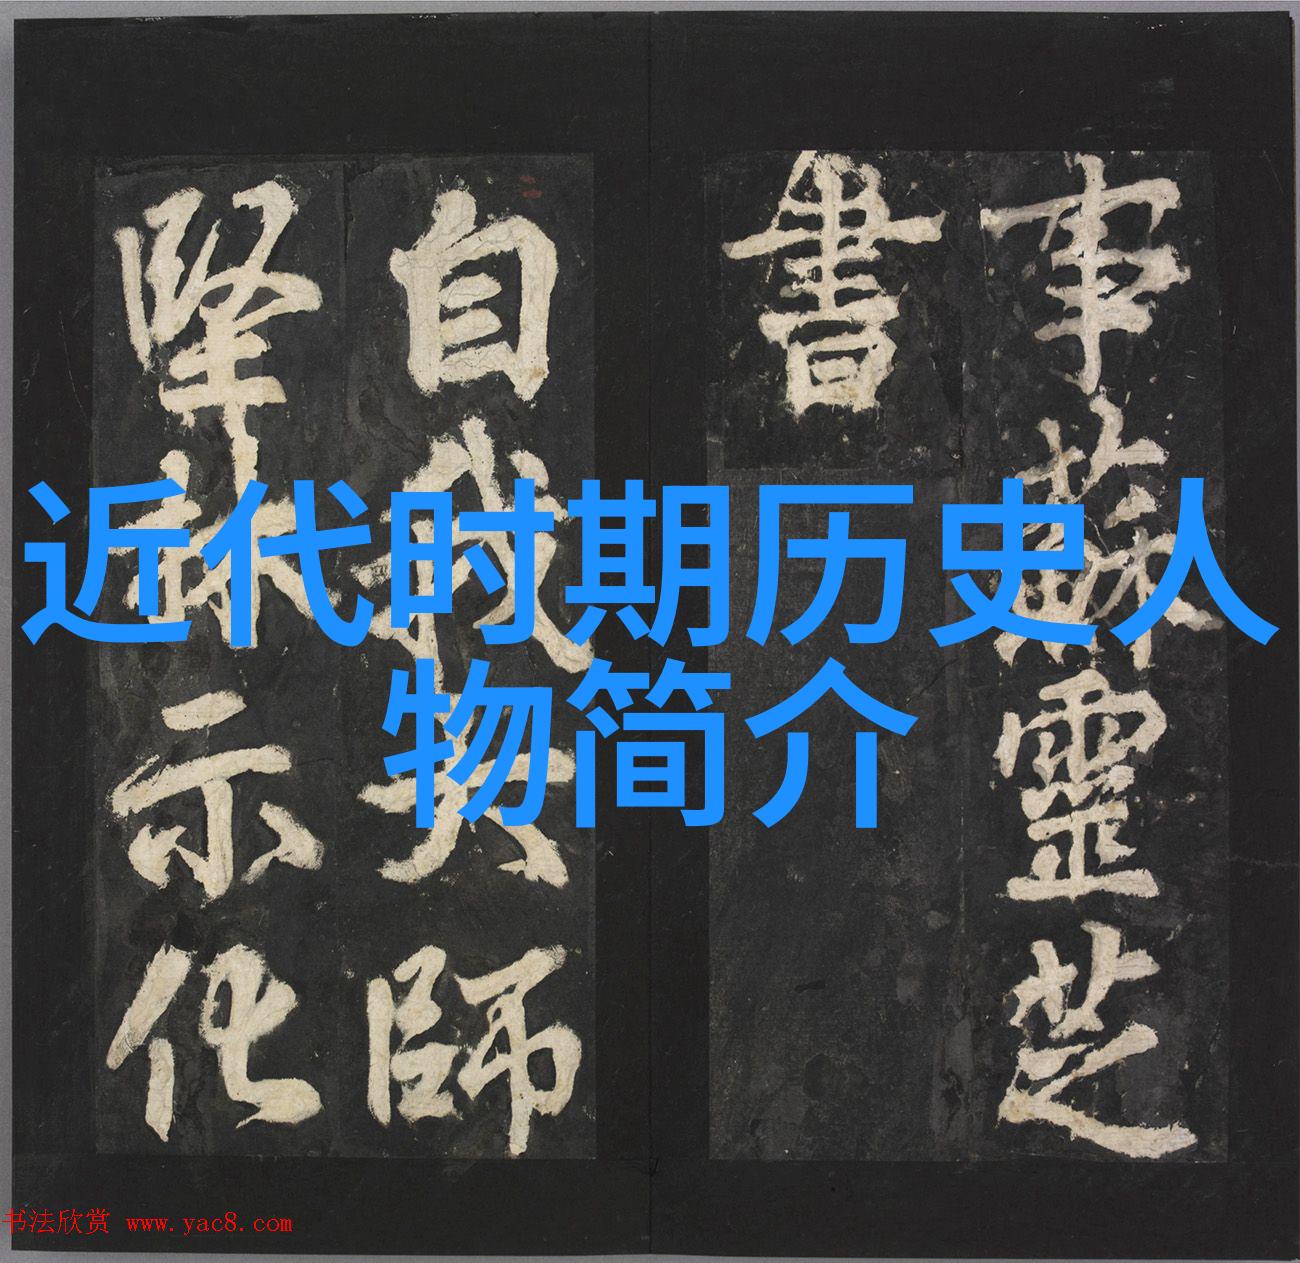 事蘇靈芝
書
自我大師
堅林示化
近代时期历史人
物简介
书法欣赏 www.yac8.com